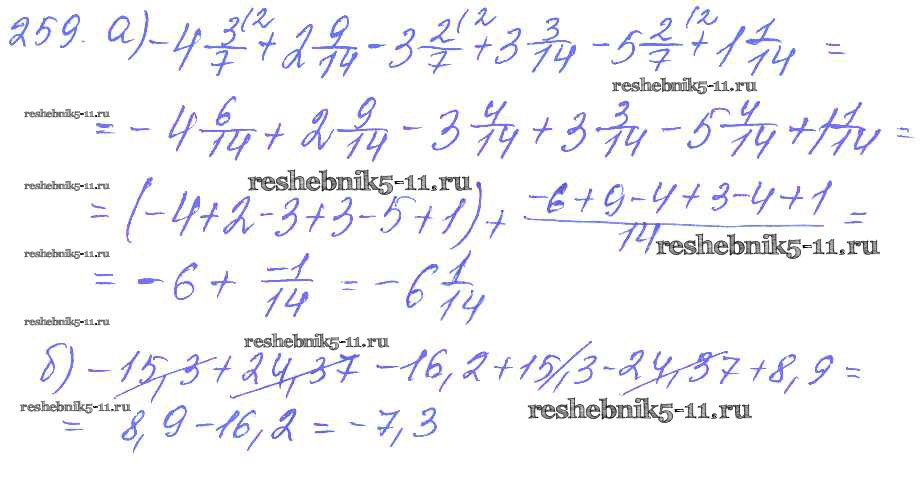 259. а) -4 3/7 (2 + 2 9/14 - 3 2/7 (2 + 3 3/14 - 5 2/7 (2 + 1 1/14 =
reshebnik5-11.ru
reshebnik5-11.ru
= - 4 6/14 + 2 9/14 - 3 4/14 + 3 3/14 - 5 4/14 + 1 1/14 =
reshebnik5-11.ru
reshebnik5-11.ru
= (-4+2-3+3-5+1) + -6+9-4+3-4+1/14 =
reshebnik5-11.ru
reshebnik5-11.ru
= -6 + -1/14 = -6 1/14
reshebnik5-11.ru
reshebnik5-11.ru
б) -15,3+24,37-16,2+15,3-24,37+8,9=
reshebnik5-11.ru
reshebnik5-11.ru
= 8,9-16,2=-7,3